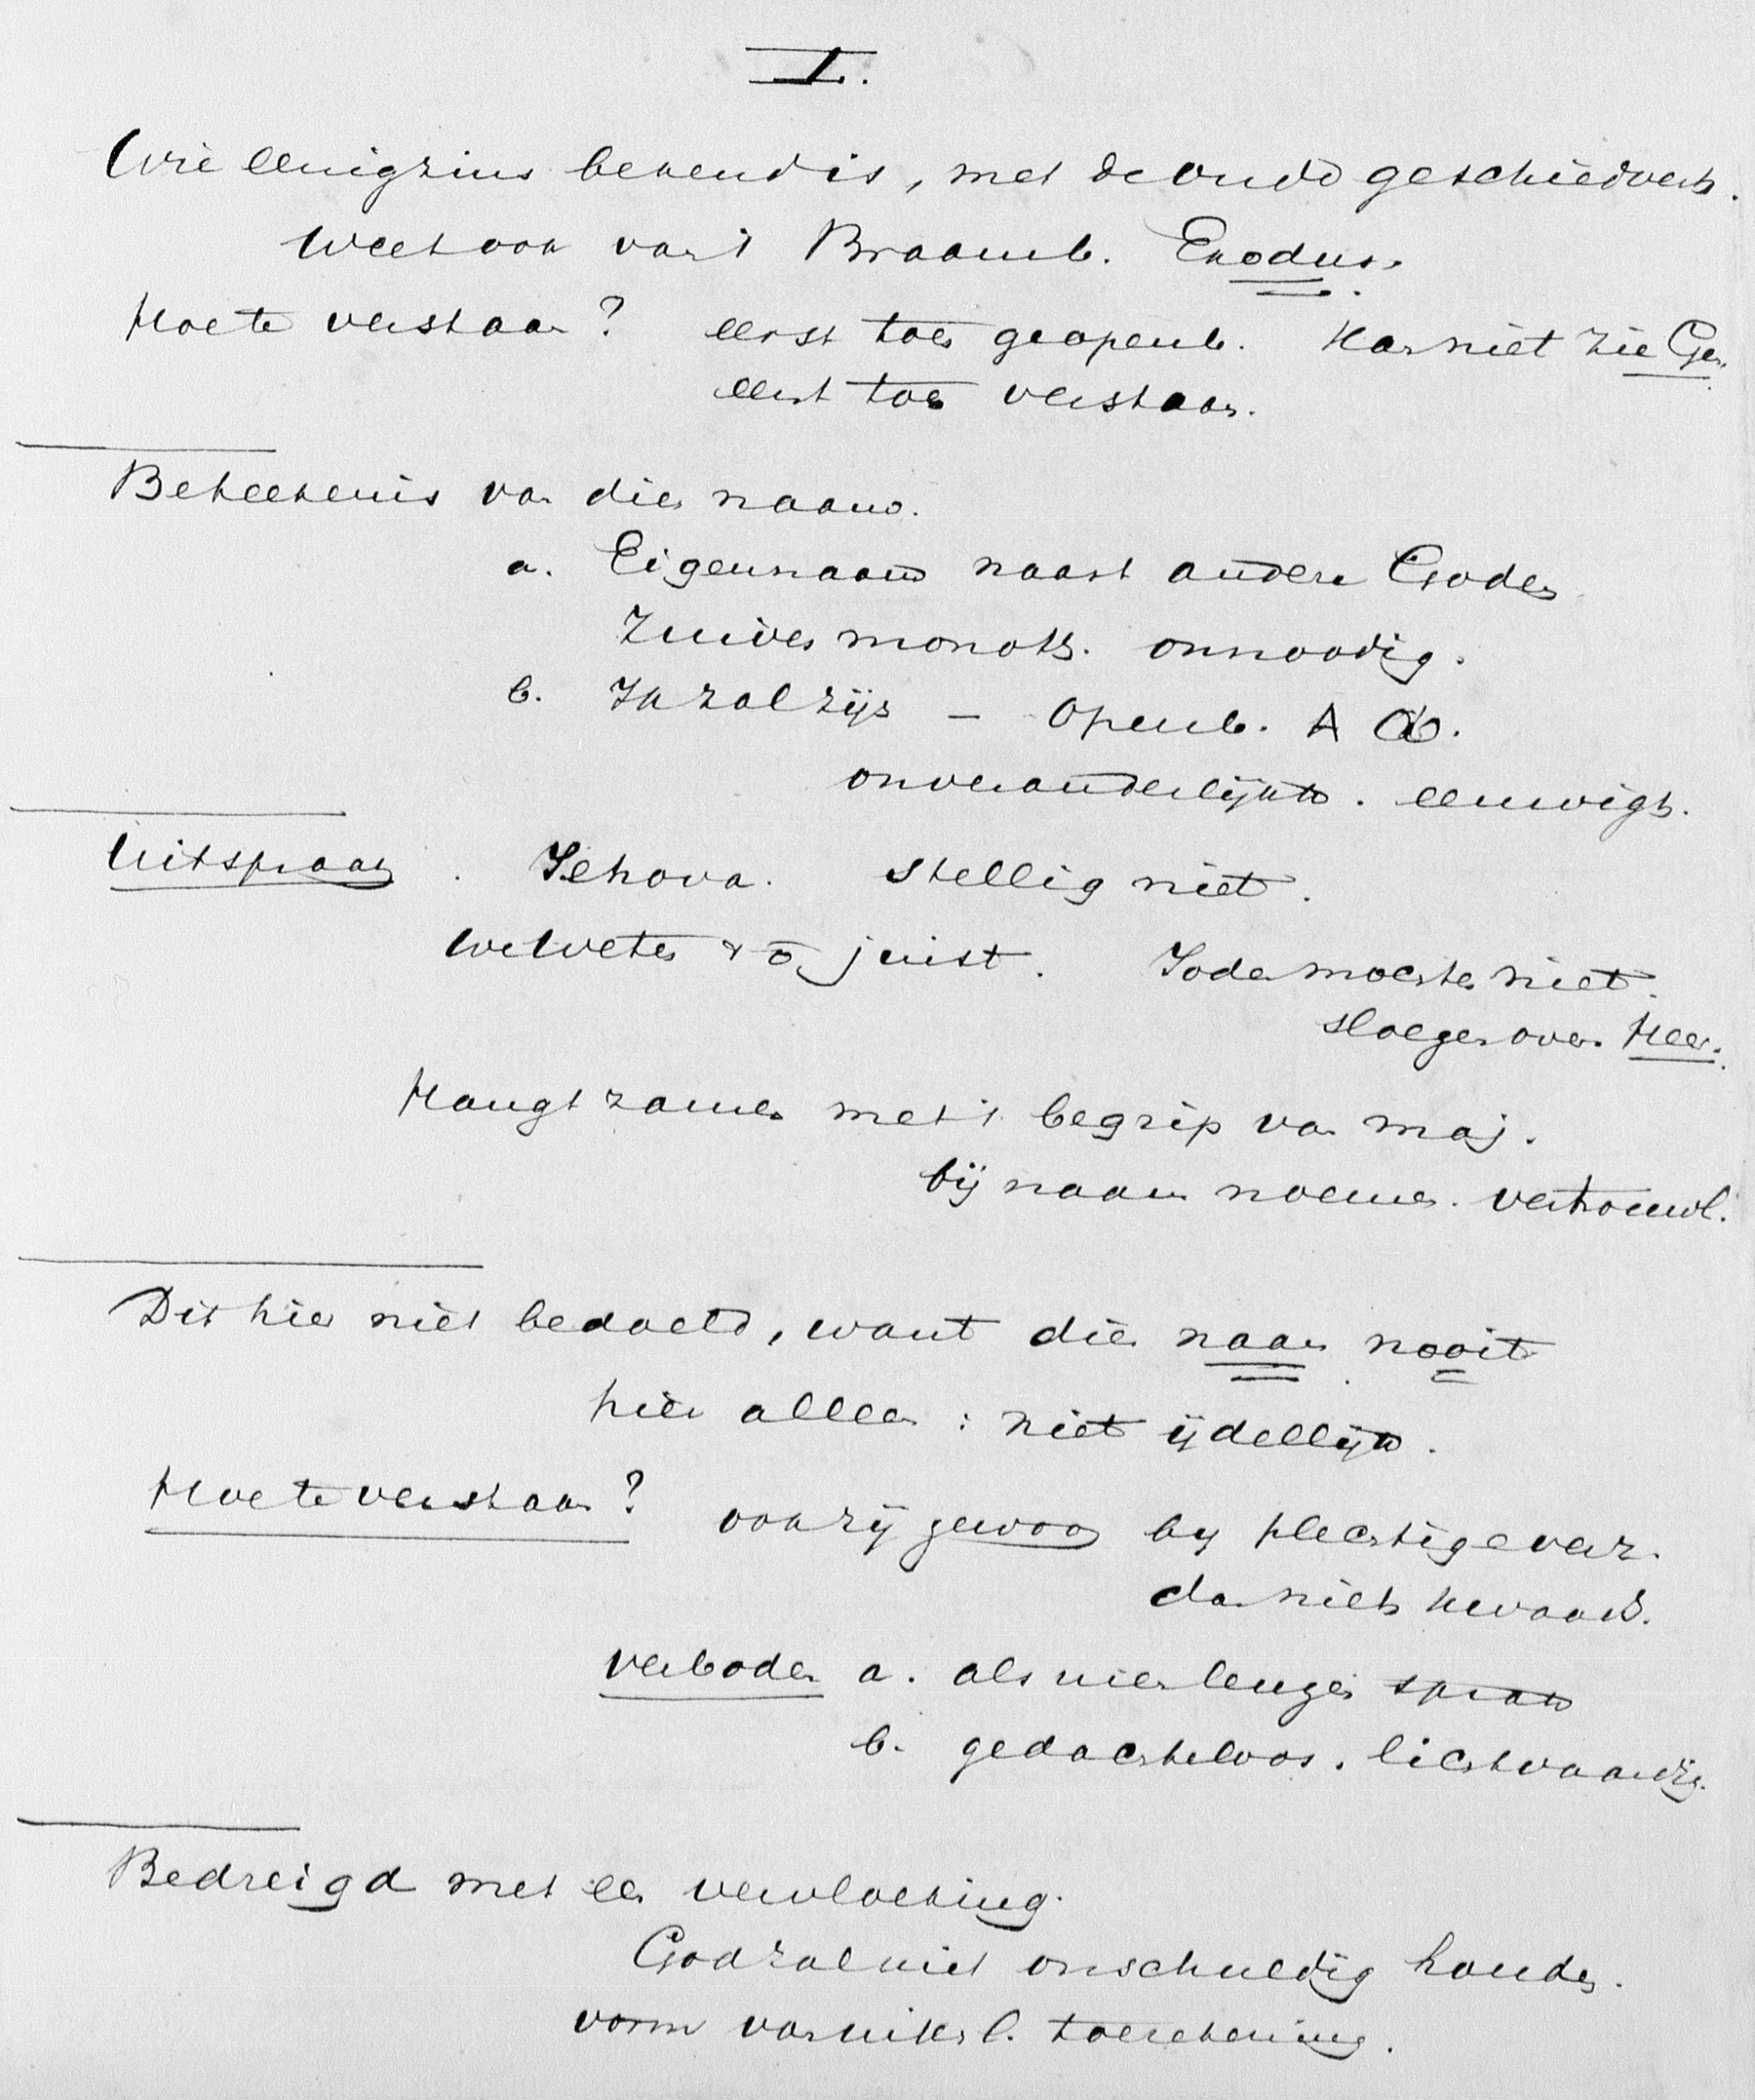 I.
Wie eenigzins bekend is, met de oude geschiedverh.
weet ook van 't Braamb. Exodus.
Hoe te verstaan? eerst toen geopenb. Kan niet zie Gen.
eerst toen verstaan.
Beteekenis van dien naam.
a. Eigennaam naast andere Goden
Zuiver monoth. onnoodig.
b. Ik zal zijn – Openb. A Ω.
onveranderlijkh. eeuwigh.
Uitspraak. Jehova. stellig niet.
we weten juist. Joden mochten niet.
sloegen over Heer.
Hangt zamen met 't begrip van maj.
bij naam noemen. vertrouwl.
Dit hier niet bedoeld, want dien naam nooit
hier alleen: niet ijdellijk.
Hoe te verstaan? ook zij gewoon by plechtige verz.
dan niets kwaads.
verboden a. als men leugen sprak
b. gedachteloos. lichtvaardig.
Bedreigd met een vervloeking.
God zal niet onschuldig houden.
vorm van uiterl. toerekening.